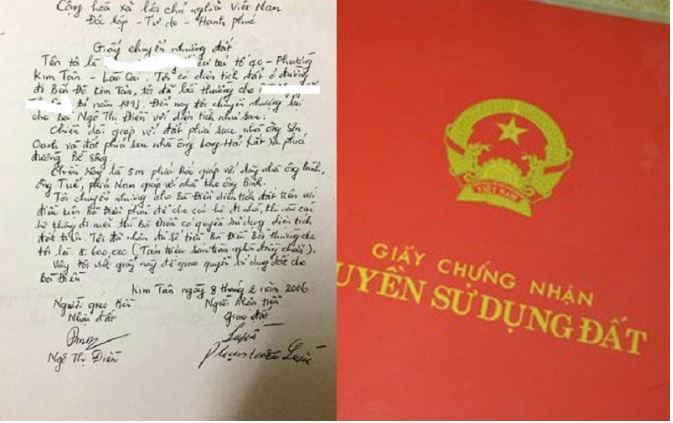 Cộng hoà xã hội chủ nghĩa Việt Nam
Độc lập - Tự do - Hạnh phúc
Giấy chuyển nhượng đất
Tên tôi là cư trú tổ 40 - Phường
Kim Tân - Lào Cai. Tôi có diện tích đất ở đường
đi Bến Đò Kim Tân, tôi đã bồi thường cho
từ năm 1993. Đến nay tôi chuyển nhượng lại
cho bà Ngô Thị Điền với diện tích như sau:
Chiều dài giáp với đất phía sau nhà ông Sơn
Oanh và đất phía sau nhà ông Long Hà
đường
Chiều rộng là 5m phía Bắc giáp với nhà ông Bình,
ông Tuế, phía Nam giáp với nhà kho ông Bình.
Tôi chuyển nhượng cho Bà Điền diện tích đất trên với
điều kiện Bà Điền phải để cho các hộ đi nhờ, khi nào các
hộ không đi nữa thì Bà Điền có quyền sử dụng diện tích
đất trên. Tôi đã nhận đủ số tiền Bà Điền Bồi thường cho
tôi là 8.600.000 (Tám triệu sáu trăm nghìn đồng chẵn).
Vậy tôi viết giấy này để giao quyền sử dụng đất cho
bà Điền
Kim Tân ngày 8 tháng 2 năm 2006
Người giao tiền Người nhận tiền
Nhận đất Giao đất
Ngô Thị Điền
VIỆT NAM
GIẤY CHỨNG NHẬN
UYỀN SỬ DỤNG ĐẤT